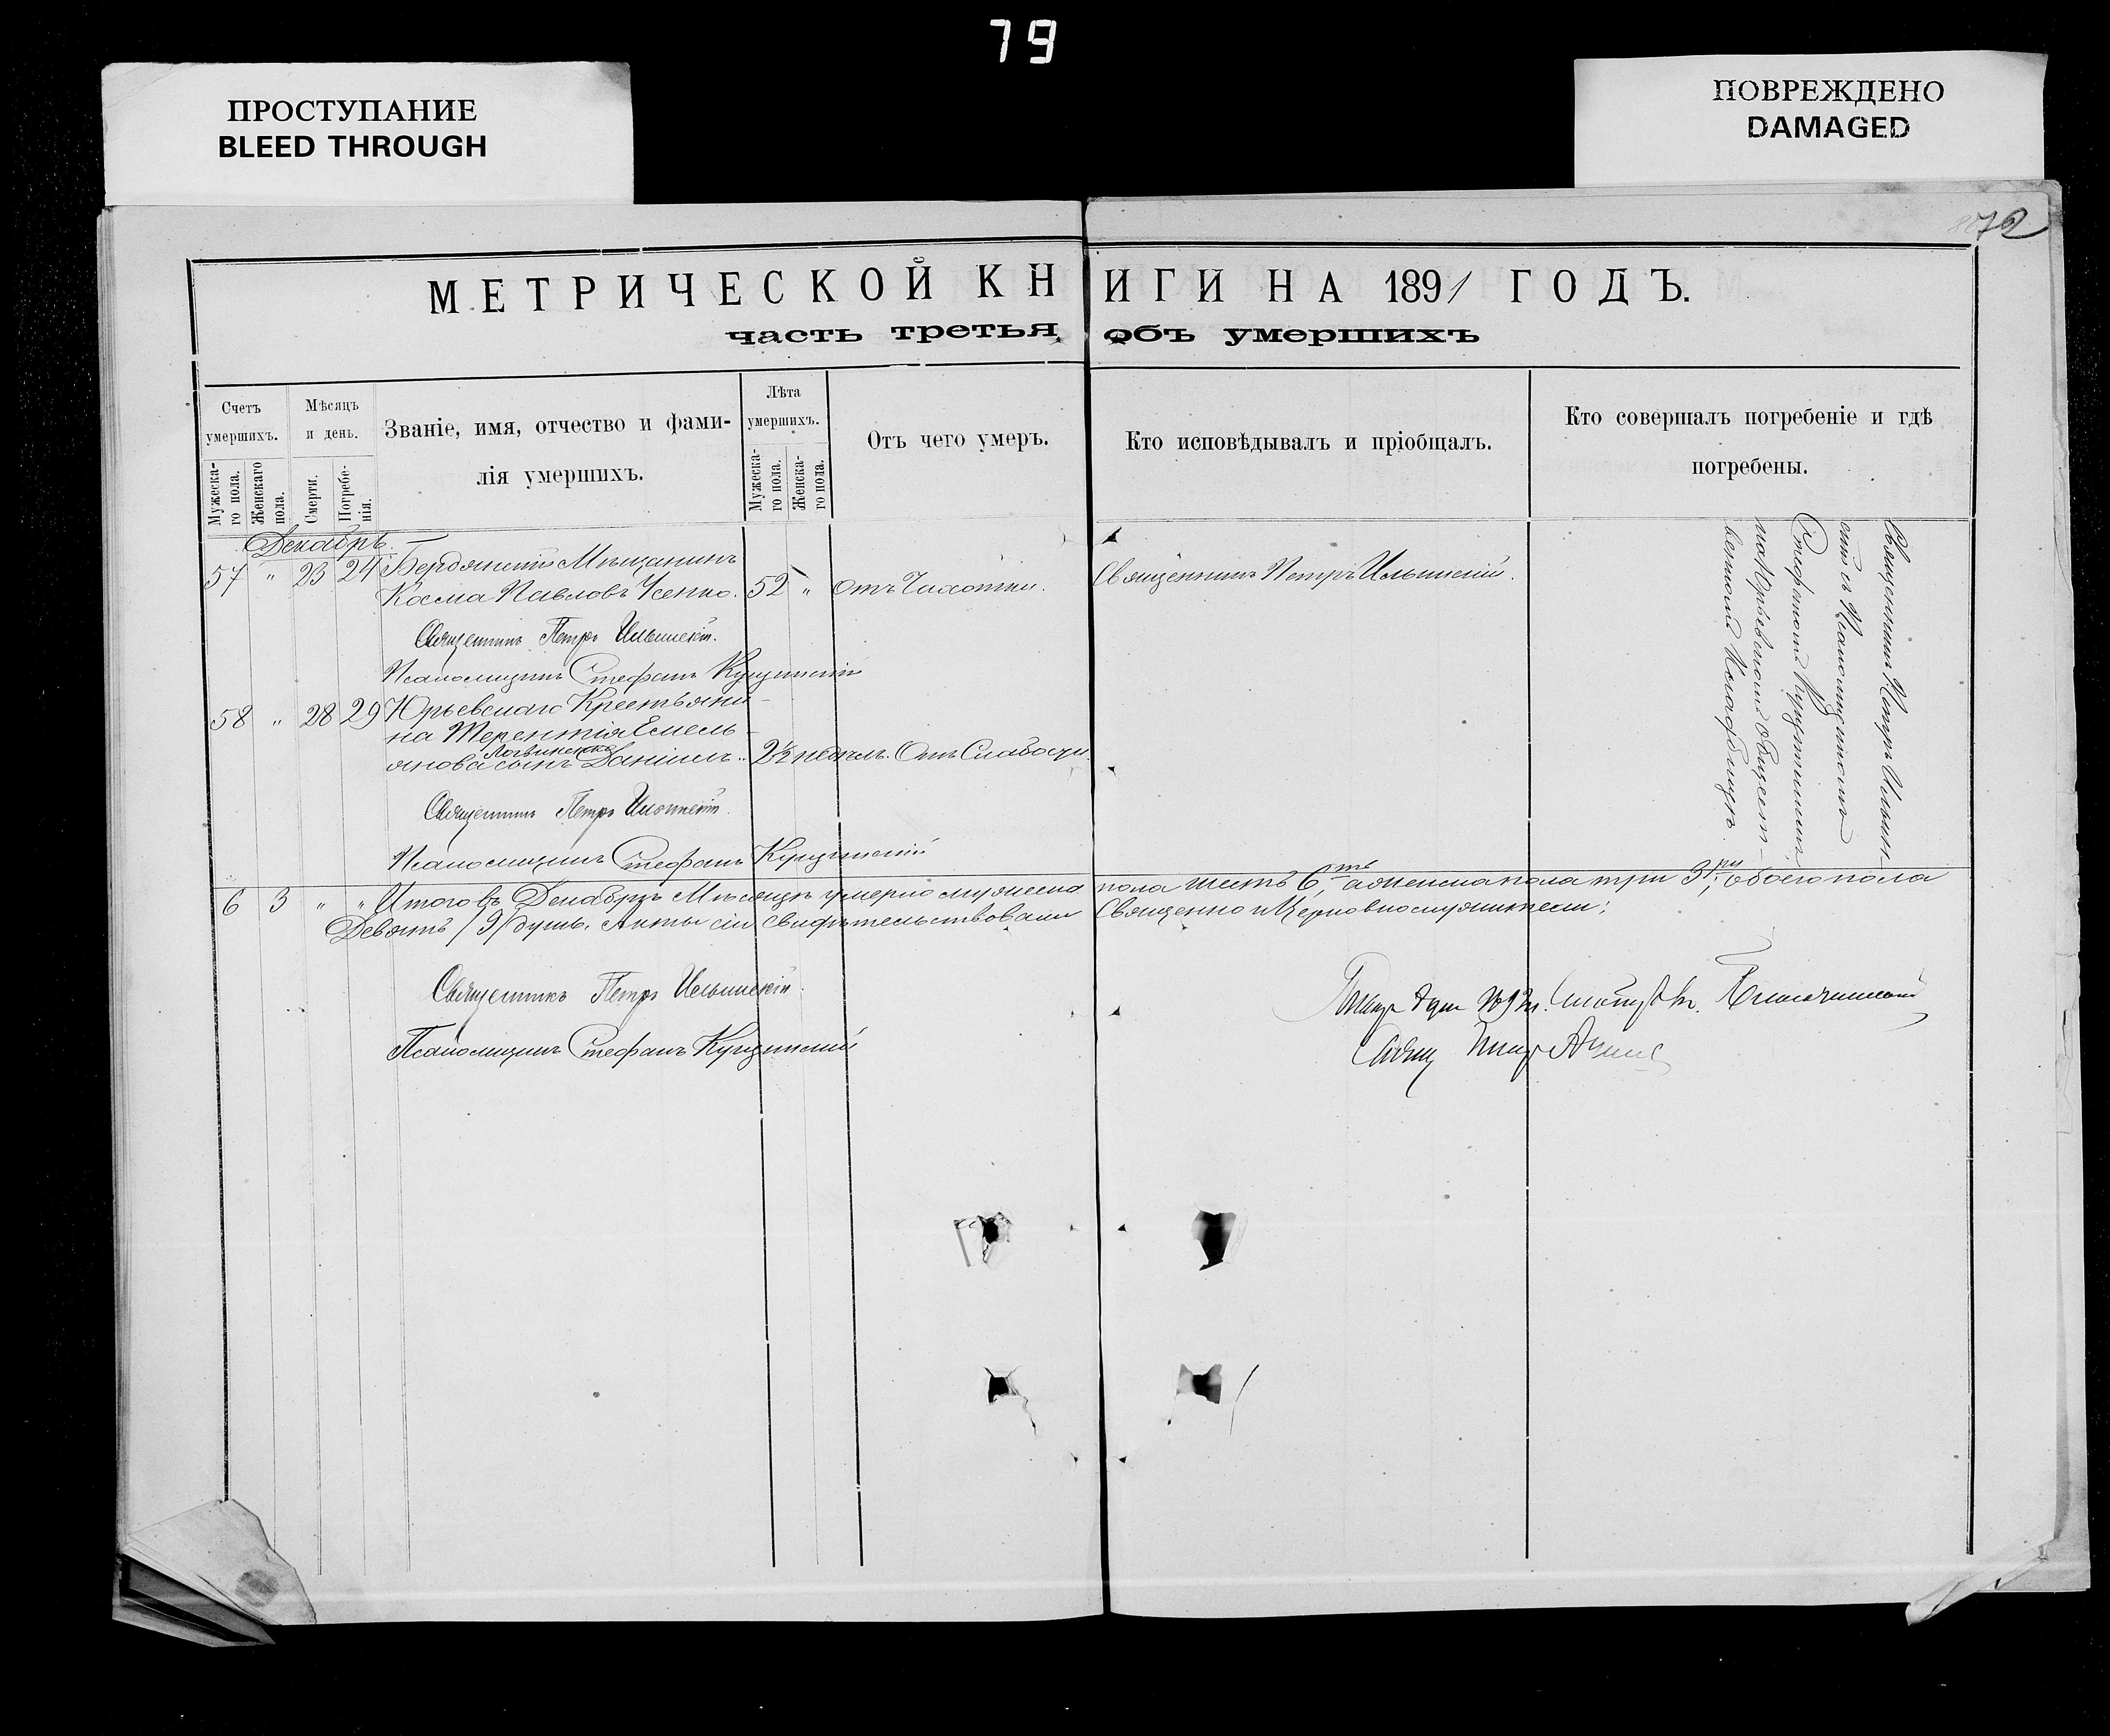 79
ПРОСТУПАНИЕ
BLEED THROUGH
ПОВРЕЖДЕНО
DAMAGED
72
МЕТРИЧЕСКОЙ КНИГИ НА 1891 ГОДЪ.
часть третья, объ умершихъ
Счетъ умершихъ.
Мужескаго пола.
Женскаго пола.
Мѣсяцъ и день.
Смерти.
Погребенія.
Званіе, имя, отчество и фами-
лія умершихъ.
Лѣта умершихъ.
Мужескаго пола.
Женскаго пола.
Отъ чего умеръ.
Кто исповѣдывалъ и пріобщалъ.
Кто совершалъ погребеніе и гдѣ
погребены.
Декабрь.
57 " 23 24 Бердянскій Мѣщанинъ
Косма Павловъ Усенко. 52 " Отъ Чахотки. Священникъ Петръ Ильинскій.
Священникъ Петръ Ильинскій.
Псаломщикъ Стефанъ
58 " 28 29 Юрьевскаго Крестьяни-
на Терентія Емель-
янова Логвиненко сынъ Даніилъ. 2½ недѣль. Отъ Слабости.
Священникъ Петръ Ильинскій.
Псаломщикъ Стефанъ
Священникъ Петръ Ильин-
скій съ Псаломщикомъ
Стефаномъ
на Юрьевскомъ общест-
венномъ кладбищѣ.
6 3 " " Итого въ Декабрѣ Мѣсяцѣ умерло мужеска пола шесть 6ть, а женска пола три 3ри, обоего пола
Девять /9/ душъ. Акты сіи свидѣтельствовали Священно и Церковнослужители:
Священникъ Петръ Ильинскій.
Псаломщикъ Стефанъ